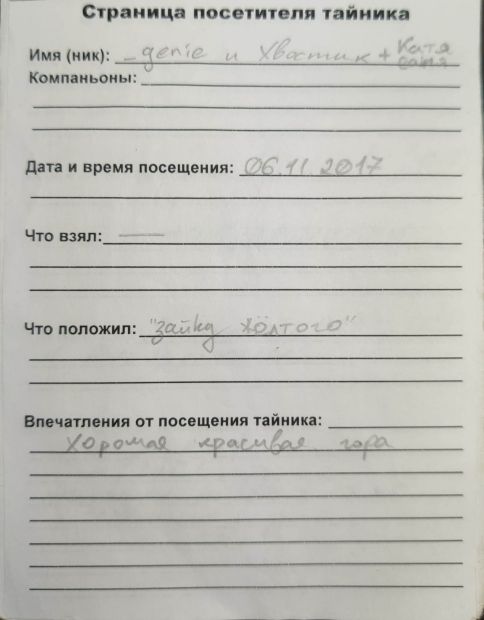 Страница посетителя тайника
Имя (ник): _genie и Хвостик + Катя
Саня
Компаньоны:
Дата и время посещения: 06.11.2017
Что взял: —
Что положил: "зайка жёлтого"
Впечатления от посещения тайника:
Хорошая красивая гора